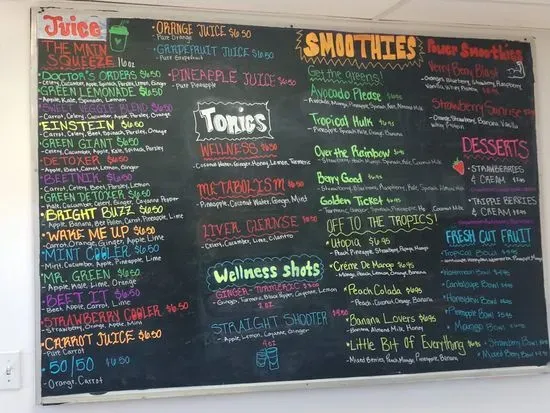 Juice
THE MAIN
SQUEEZE 16oz
DOCTOR'S ORDERS $6.50
GREEN LEMONADE $6.50
- Apple, Kale, Spinach, Lemon
SWEET VEGGIE BLEND $6.50
- Carrot, Celery, Cucumber, Apple, Parsley, Orange
EINSTEIN $6.50
- Carrot, Celery, Beet, Spinach, Parsley, Orange
GREEN GIANT $6.50
- Celery, Cucumber, Apple, Kale, Spinach, Parsley
DETOXER $6.50
- Apple, Carrot, Beet, Ginger
BEETNIK $6.50
- Carrot, Celery, Beet, Parsley, Lemon
GREEN DETOXER $6.50
- Kale, Cucumber, Celery, Ginger, Cayenne Pepper
BRIGHT BUZZ $6.50
- Apple, Banana, Beet, Carrot, Pineapple, Lime
WAKE ME UP $6.50
- Carrot, Orange, Ginger, Apple, Lime
MINT COOLER $6.50
- Mint, Cucumber, Apple, Pineapple, Lime
MR. GREEN $6.50
- Apple, Kale, Orange
BEET IT $6.50
- Beet, Apple, Carrot, Lime
STRAWBERRY COOLER $6.50
- Strawberry, Orange, Apple, Mint
CARROT JUICE $6.50
- Pure Carrot
50/50 $6.50
- Orange, Carrot
ORANGE JUICE $6.50
- Pure Orange
GRAPEFRUIT JUICE $6.50
- Pure Grapefruit
PINEAPPLE JUICE $6.50
- Pure Pineapple
Tonics
WELLNESS
- Coconut Water, Ginger, Honey, Lemon, Turmeric
METABOLISM
- Pineapple, Coconut Water, Ginger, Mint
LIVER CLEANSE
- Celery, Cucumber, Lime, Cilantro
Wellness Shots
GINGER-TURMERIC
- Ginger, Turmeric, Black Pepper, Cayenne, Lemon
2 oz
STRAIGHT SHOOTER
- Apple, Lemon, Cayenne, Ginger
4oz
SMOOTHIES
Get the greens!
Avocado Please
- Avocado, Mango, Pineapple, Spinach, Kale, Almond Milk
Tropical Hulk
- Pineapple, Spinach, Kale, Orange, Banana
Over the Rainbow
- Strawberry, Peach, Mango, Pineapple, Spinach, Kale, Coconut Milk
Berry Good
- Strawberry, Blueberry, Raspberry, Kale, Spinach, Almond Milk
Golden Ticket
- Turmeric, Ginger, Spinach, Pineapple, Coconut Milk
OFF TO THE TROPICS!
Utopia $6.95
- Peach, Pineapple, Strawberry, Papaya, Mango
Créme De Mango $6.95
- Mango, Peach, Lemon, Orange, Banana
Peach Colada $6.95
- Peach, Coconut, Orange, Banana
Banana Lovers $6.95
- Banana, Almond Milk, Honey
Little Bit Of Everything $6.95
- Mixed Berries, Peach, Mango, Pineapple, Banana
Power Smoothies
Very Berry Blast
- Oranges, Blueberry, Strawberry, Raspberry
Vanilla, Whey Protein
Strawberry Sunrise
- Orange, Strawberry, Banana, Vanilla
Whey Protein
DESSERTS
STRAWBERRIES
& CREAM
TRIPPLE BERRIES
& CREAM
FRESH CUT FRUIT
Tropical Bowl
Watermelon Bowl
Cantaloupe Bowl
Honeydew Bowl
Pineapple Bowl
Mango Bowl
Strawberry Bowl
Mixed Berry Bowl